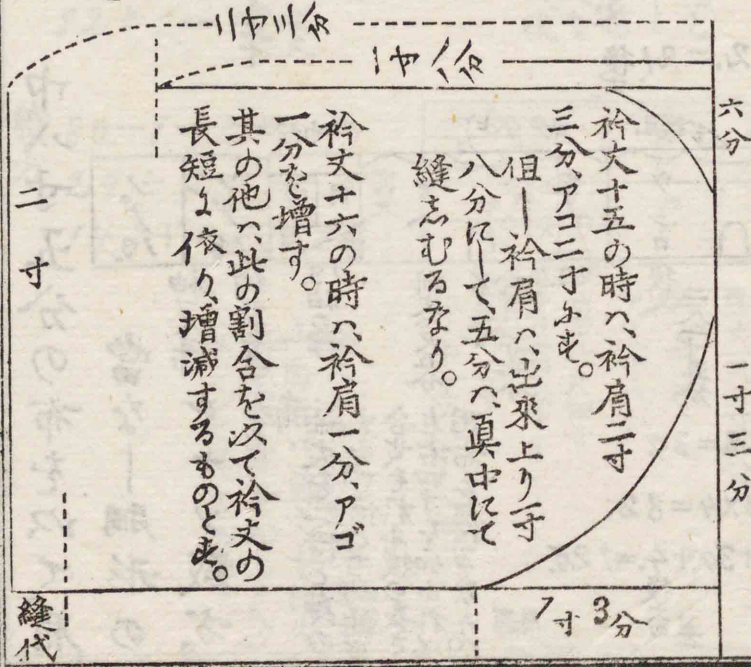 二寸三分
一寸八分
六分
一寸三分
衿丈十五の時ハ、衿肩二寸
三分、アコ二寸とす。
但し衿肩ハ、出來上り一寸
八分にして、五分ハ、眞中にて
縫志むるなり。
衿丈十六の時ハ、衿肩一分、アゴ
一分を増す。
其の他ハ、此の割合を以て衿丈の
長短に依り、増減するものとす。
二寸
1寸3分
縫代